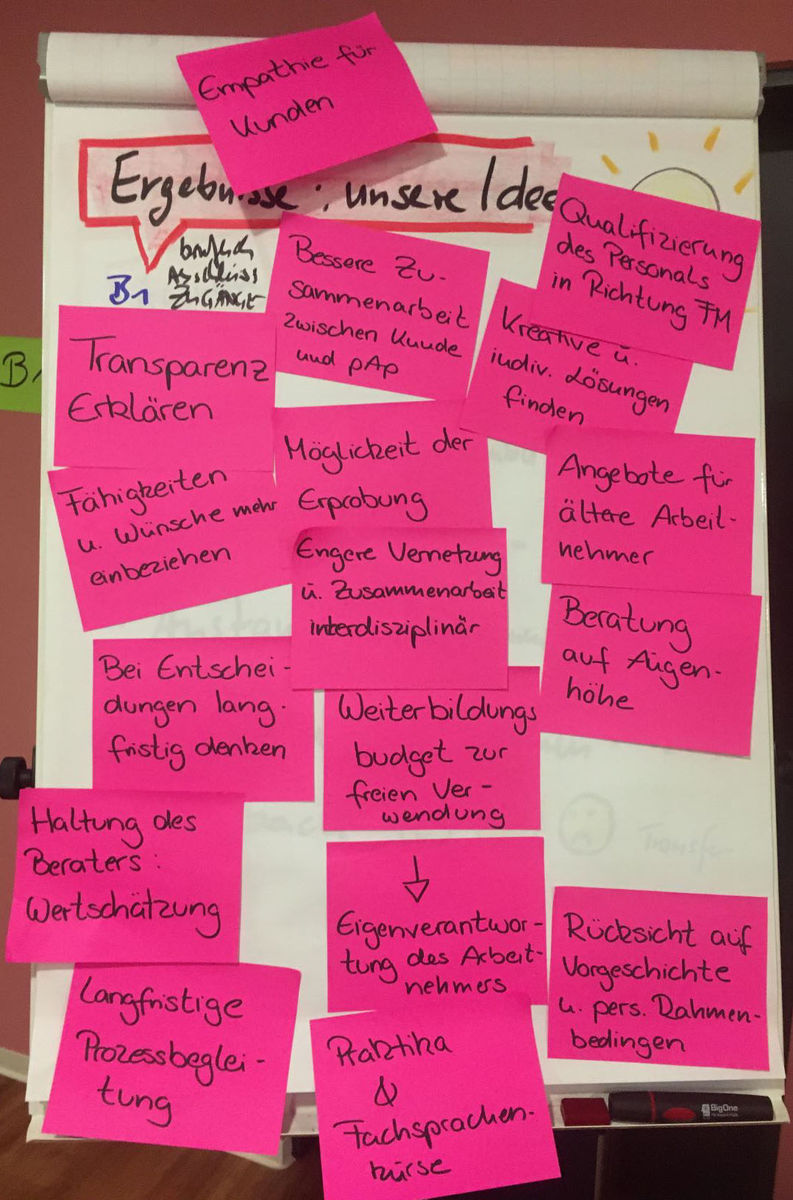 Empathie für
Kunden
Ergebnisse: unsere Idee
B1
ZUGÄNGE
Bessere Zu-
sammenarbeit
zwischen Kunde
und pAp
Qualifizierung
des Personals
in Richtung FM
Kreative u.
indiv. Lösungen
finden
B1
Transparenz
Erklären
Möglickeit der
Erprobung
Fähigkeiten
u. Wünsche mehr
einbeziehen
Angebote für
ältere Arbeit-
nehmer
Engere Vernetzung
u. Zusammenarbeit
interdisziplinär
Beratung
auf Augen-
höhe
Bei Entschei-
dungen lang-
fristig denken
Weiterbildungs
budget zur
freien Ver-
wendung
Haltung des
Beraters:
Wertschätzung
↓
Eigenverantwor-
tung des Arbeit-
nehmers
Rücksicht auf
Vorgeschichte
u. pers. Rahmen-
bedingen
Langfristige
Prozessbeglei-
tung
Praktika
&
Fachsprachen-
kurse
Transfe
BigOne